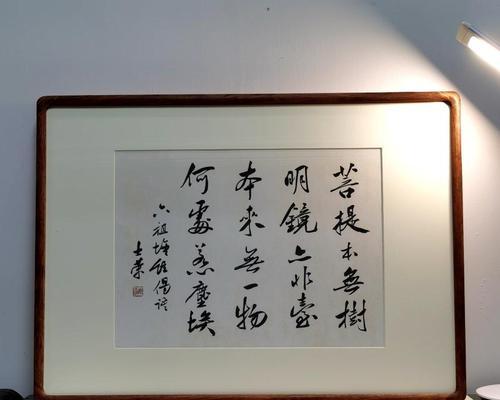 菩提本無樹
明鏡亦非臺
本來無一物
何處惹塵埃
六祖慧能偈語
士榮